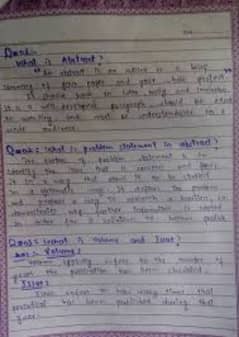 What is Abstract?
"An abstract is an outline or a brief
summary of your paper and your whole project.
It should have an intro, body and conclusion.
It is a well-developed paragraph, should be exact
in wording, and must be understandable to a
wide audience.
What is problem statement in abstract?
The purpose of problem statement is to
identify the issue that is concern and focus
it in a way that allow it to be studied
in a systematic way. It defines the problem
and proposes a way to research a solution, or
demonstrates why further information is needed
in order for a solution to become possible
What is volume and Issue?
Ans: Volume:
Volume typically refers to the number of
years the publication has been circulated.
Issue:
Issue refers to how many times that
periodical has been published during that
year.